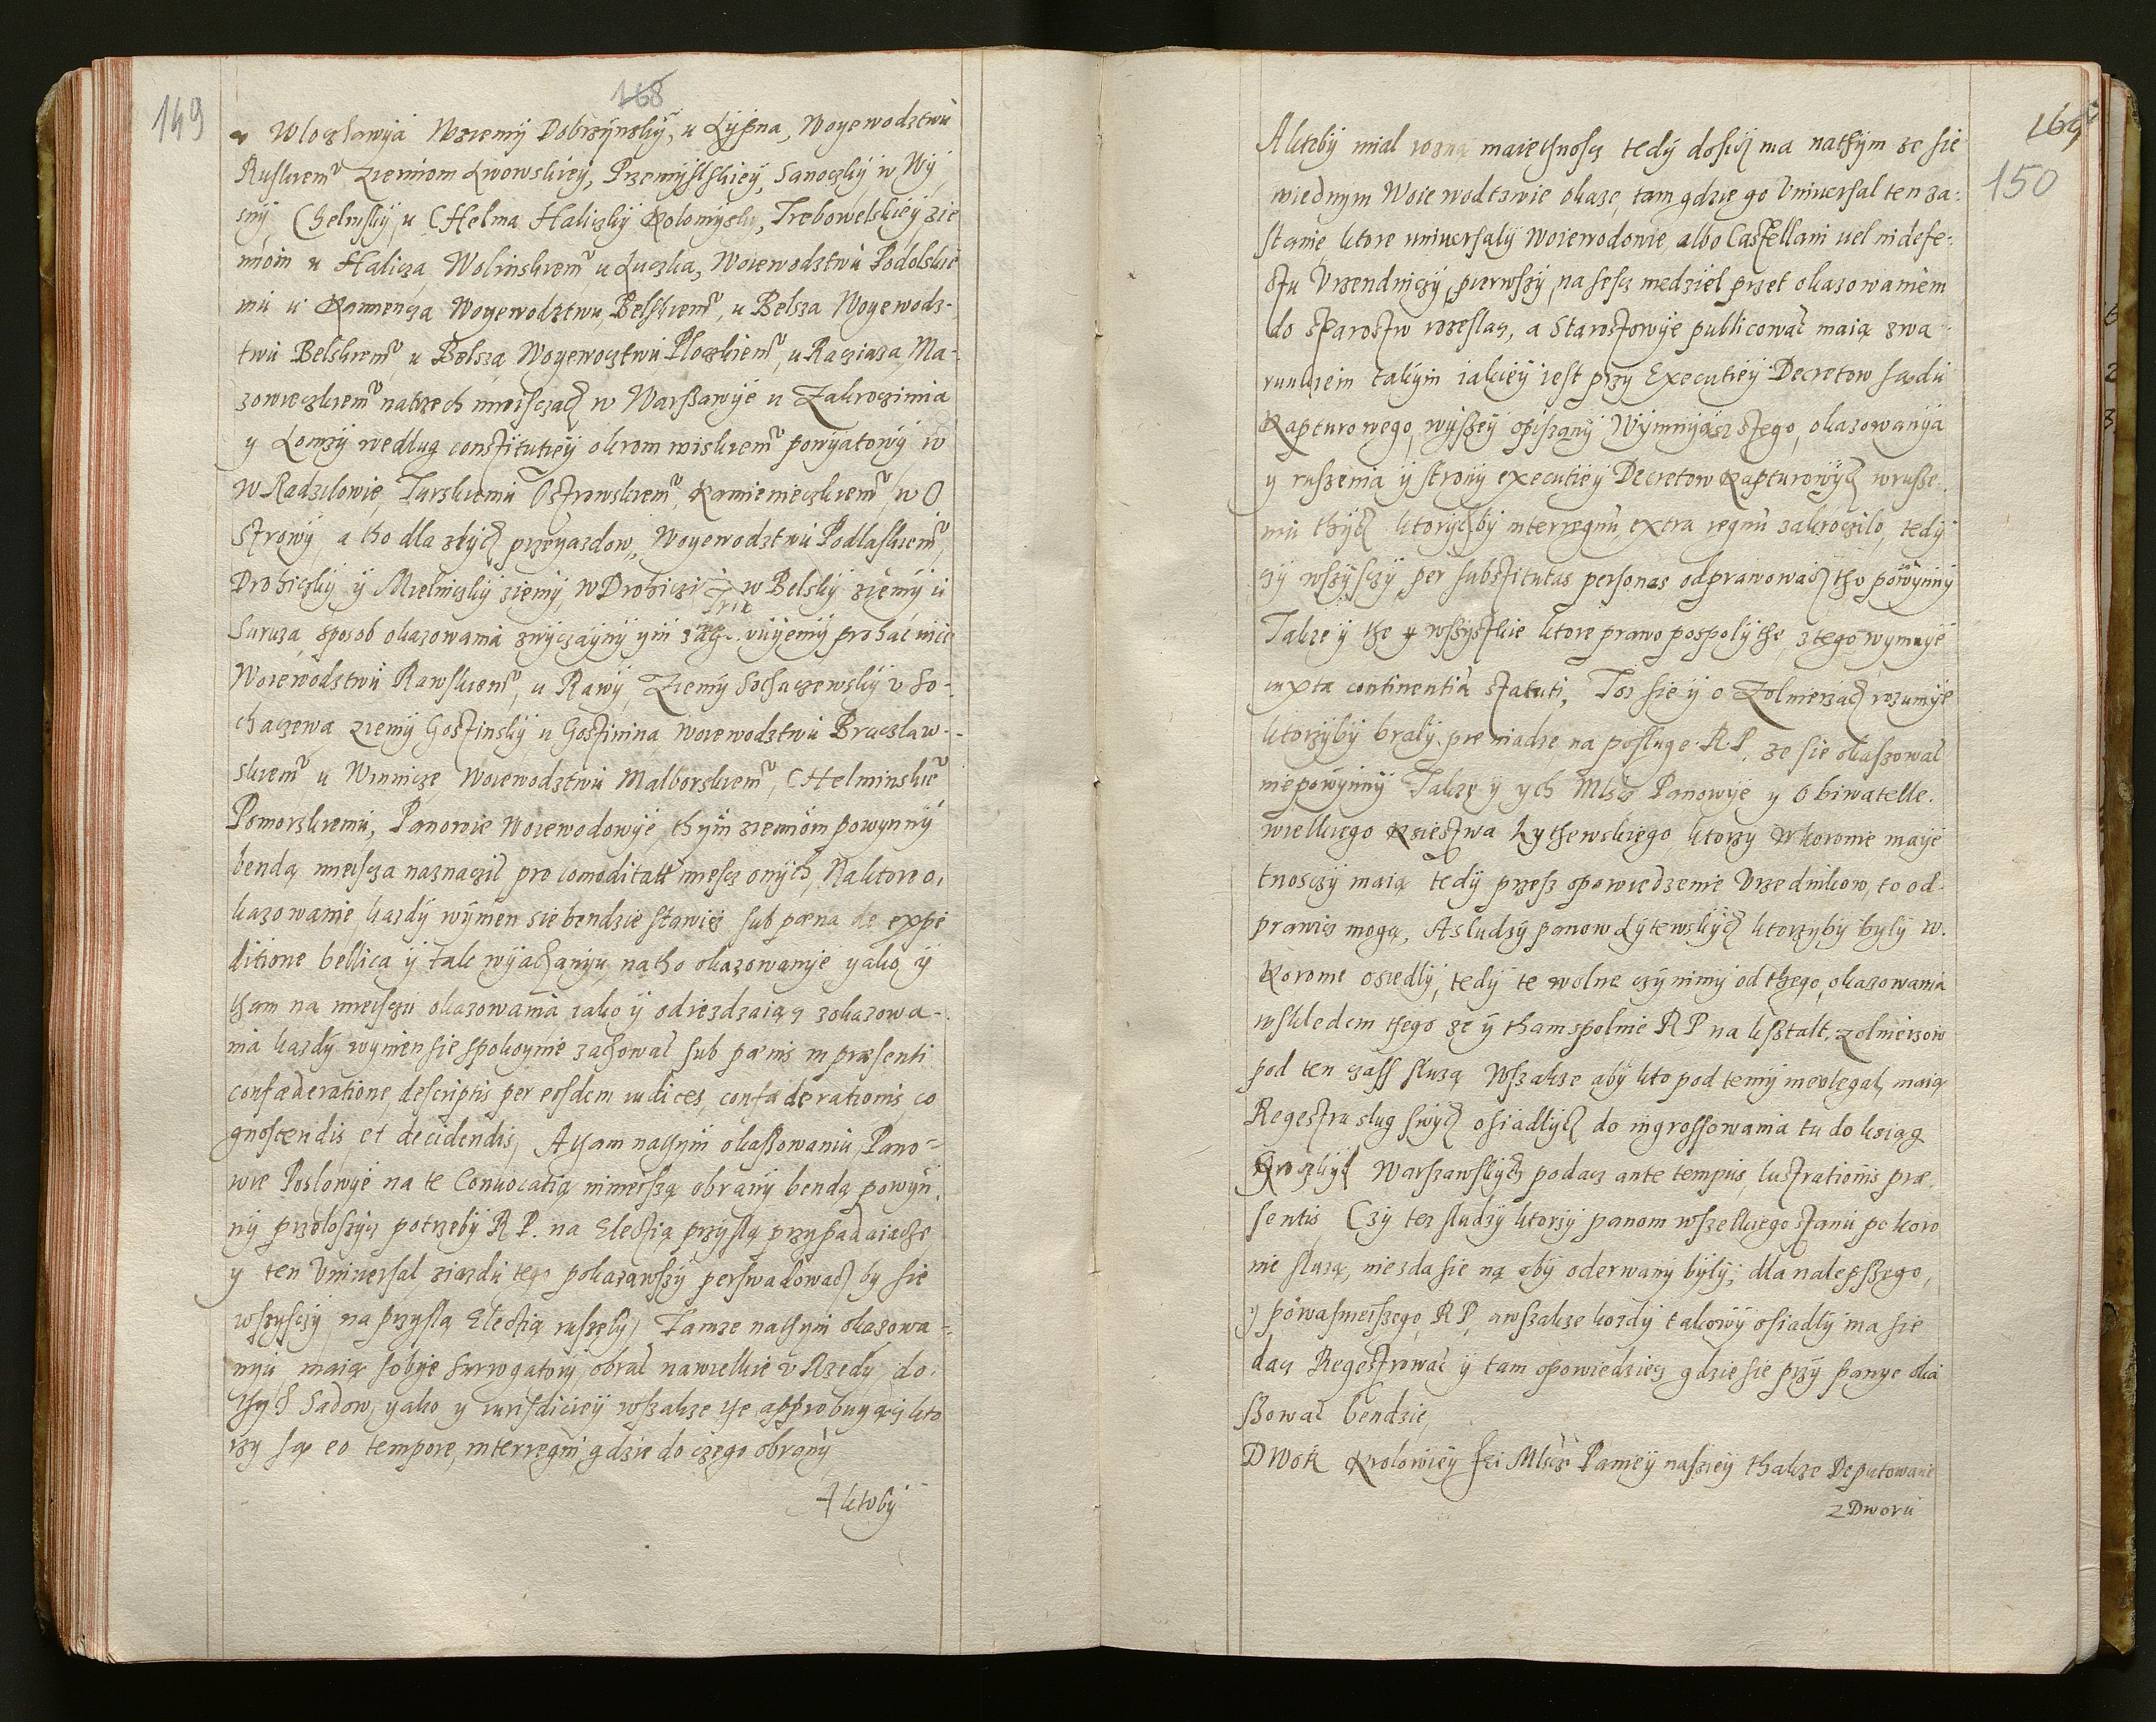 168
149
w Wloczławyá Wzremÿ Dobrzÿnskÿ, u Lÿpna, Woyewodztwu
Ruskiem̃ ziemiom Lwowskieÿ, Przemÿslskieÿ, Sanoczkÿ w Wÿ,
snÿ, Chelmskÿ, u CHelma Haliczkÿ Kolomÿsky, Trebowelskieÿ zie
miom u Halicza Wolinskiem̃ u Luczka, Woiewodztwu Podolskie
mu u Kamiencza Woyewodztwu, Belskiem̃, u Belsza Woyewodz-
twu Belskiem̃, u Belsza Woyewoztwu Ploczkiem̃, u Raciaza, Ma-
zowieczkiem̃ natrzech mieisczach w Warszawÿe u Zakroczimia
y Lomzÿ wedlug constitutieÿ okrom wiskiem̃ powÿatowÿ w
w Radzilowie, Turskiemu Ostrowskiem̃, Kamienieczkiem̃, w O
strowÿ, a tho dla zlÿch przeyazdow, Woyewodztwu Podlaskiem̃,
Drohiczkÿ ÿ Mielniczkÿ ziemÿ, w Drohiczi w Belskÿ ziemÿ u
Suruza sposob okazowania zwÿczaÿnÿ ÿm
Woiewodztwu Rawskiem̃, u Rawÿ, Ziemÿ Sochaczewskÿ v So-
chaczewa ziemÿ Gostinskÿ u Gostinina, woiewodztwu Braczlaw-
skiem̃ u Winnicze Woiewodztwu Malborskiem̃, CHelminskie̴
Pomorskiemu, Panowie Woiewodowÿe, thÿm ziemiom powynnÿ
bendą mieisza naznaczÿć pro comoditate miescz onÿch, Naktore o,
kazowanie, kazdÿ wÿmen sie bendzie stawicz sub pæna de expe
ditione bellica ÿ tak wÿachanyu, natho okazowanÿe yako ÿ
tham na mieisczu okazowania iako ÿ odiezdzaiącz zokazowa-
nia kazdÿ wymen sie spokoynie zachować sub pænis in præsenti
confæderatione, descriptis per eosdem iudices, confæderationis, co
gnoscendis, et decidendis, A tham nathym okassowaniu, Pano=
wie Poslowÿe na te Conuocatią ninieiszą obranÿ bendą powÿn,
nÿ przelozÿcz potrzebÿ R P. na Electią przyslą przypadaiącze,
y ten Vniuersal ziazdu tego pokazawszÿ perswadować by sie
wszysczÿ na przyslą Electią ruszylÿ, Tamze nathym okazowa=
nÿu, maią sobÿe Surrogatorÿ, obrać nawielkie v Rzedy, do,
thych Sadow, yako y iurisdicieÿ wszakze the approbuyącz kto
rzy są eo tempore, interregni, gdzie do czego obranÿ
A ktobÿ
169
150
A ktobÿ mial rozną maiethnoscz tedÿ dosicz ma nathym ze sie
wiednym Woiewodtzwie okaze, tam gdzie go Vniuersal ten za:
stanie, ktore uniuersalÿ Woiewodowie, albo Castellani uel in defe:
ctu Vrzendniczÿ, pierwszÿ, na sescz niedziel przet okazowaniem
do starostw rozeslacz, a Starostowÿe publicować maią zwa-
runkiem takÿm iakieÿ iest przy Executieÿ Decretow sądu
Kapturowego, wyszeÿ opiszanÿ Wÿmnÿasz stego, okazowanÿa
y ruszenia ÿ stronÿ executieÿ Decretow Kapturowÿch wrusze.
niu thych ktorÿchbÿ interregnũ extra regnũ zakroczilo, tedÿ
czÿ wszÿsczÿ per substitutas personas odprawowacz tho powÿnnÿ
Takze ÿ the y wszÿstkie ktore prawo pospolÿthe, z tego wymuye
iuxta continentiã statuti, Tos sie ÿ o Zolnierzach rozumÿe
ktorzyby bralÿ pieniadze na posluge R P. ze sie okassować
niepowÿnnÿ Takze ÿ ych Mscz Panowÿe y Obiwatelle.
wielkiego Ksiestwa Lythewskiego ktorzy w Koronie maÿe
tnosczÿ maią tedÿ przesz opowiedzenie Vrzednikow, to od-
prawicz mogą, A sludzÿ panow Lÿtewskÿch ktorzyby bylÿ w.
Koronie osiedlÿ, tedÿ te wolne czÿnimy od thego, okazowania
wskledem thego ze ÿ tham spolnie R P na ksztalt, zolnierzow
pod ten czass sluzą Wszakze abÿ kto pod temÿ nieulegal, maią
Regestra slug swÿch osiadlÿch do ingrossowania tu do ksiąg
Groczkÿch Warszawskÿch podacz ante tempus, lustrationis præ,
sentis, Czÿ tez sludzÿ ktorzÿ panom wszelkiego stanu po koro
nie sluzą, niezda sie ną abÿ oderwanÿ bÿlÿ, dla nalepszego,
y powasnieiszego, R P, awszakze kozdÿ takowÿ osiadlÿ ma sie
dacz Regestrować ÿ tam opowiedziecz gdzie sie przÿ panye oka
szować bendzie,
DWor Krolowieÿ Jei Mscz Panieÿ naszieÿ thakze Deputowane
z Dworu